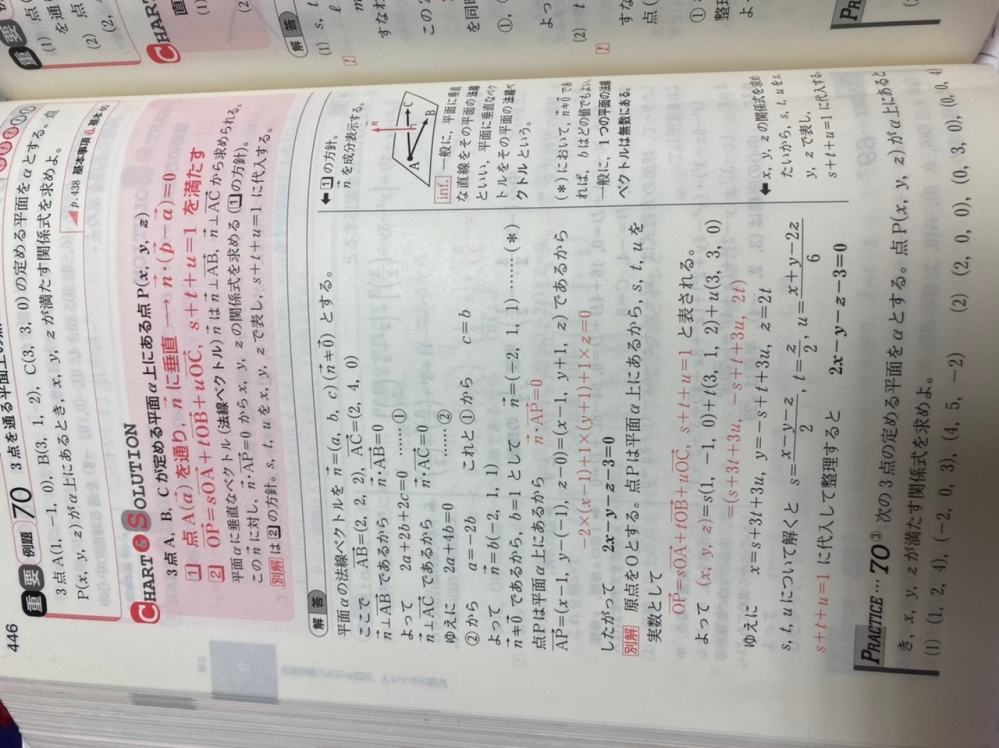 446
重要 例題 70 3点を通る平面上の点
3点 A(1, -1, 0), B(3, 1, 2), C(3, 3, 0) の定める平面をαとする。点
P(x, y, z) がα上にあるとき, x, y, z が満たす関係式を求めよ。
p.438 基本事項 6, 基本
CHART & SOLUTION
3点 A, B, C が定める平面α上にある点 P(x, y, z)
1 点 A(a⃗) を通り, n⃗ に垂直 → n⃗・(p⃗-a⃗)=0
2 OP⃗=sOA⃗+tOB⃗+uOC⃗, s+t+u=1 を満たす
平面αに垂直なベクトル (法線ベクトル) n⃗ は n⃗⊥AB⃗, n⃗⊥AC⃗ から求められる。
この n⃗ に対し, n⃗・AP⃗=0 から x, y, z の関係式を求める (1 の方針)。
別解 は 2 の方針。s, t, u を x, y, z で表し, s+t+u=1 に代入する。
解答
平面αの法線ベクトルを n⃗=(a, b, c) (n⃗≠0⃗) とする。
ここで AB⃗=(2, 2, 2), AC⃗=(2, 4, 0)
n⃗⊥AB⃗ であるから n⃗・AB⃗=0
よって 2a+2b+2c=0 ……①
n⃗⊥AC⃗ であるから n⃗・AC⃗=0
ゆえに 2a+4b=0 ……②
②から a=-2b これと①から c=b
よって n⃗=b(-2, 1, 1)
n⃗≠0⃗ であるから, b=1 として n⃗=(-2, 1, 1) ……(*)
点Pは平面α上にあるから n⃗・AP⃗=0
AP⃗=(x-1, y-(-1), z-0)=(x-1, y+1, z) であるから
-2×(x-1)+1×(y+1)+1×z=0
したがって 2x-y-z-3=0
別解 原点をOとする。点Pは平面α上にあるから, s, t, u を
実数として
OP⃗=sOA⃗+tOB⃗+uOC⃗, s+t+u=1 と表される。
よって (x, y, z)=s(1, -1, 0)+t(3, 1, 2)+u(3, 3, 0)
=(s+3t+3u, -s+t+3u, 2t)
ゆえに x=s+3t+3u, y=-s+t+3u, z=2t
s, t, u について解くと s=(x-y-z)/2, t=z/2, u=(x+y-2z)/6
s+t+u=1 に代入して整理すると 2x-y-z-3=0
← 1 の方針。
n⃗ を成分表示する。
n⃗
A
B
C
inf. 一般に, 平面に垂直
な直線をその平面の法線
といい, 平面に垂直なベク
トルをその平面の法線ベ
クトルという。
(*)において, n⃗≠0⃗ であ
れば, b はどの値でもよい。
一般に, 1つの平面の法線
ベクトルは無数にある。
← x, y, z の関係式を求め
たいから, s, t, u を x,
y, z で表し,
s+t+u=1 に代入する
PRACTICE…70③ 次の3点の定める平面をαとする。点 P(x, y, z) がα上にあると
き, x, y, z が満たす関係式を求めよ。
(1) (1, 2, 4), (-2, 0, 3), (4, 5, -2)
(2) (2, 0, 0), (0, 3, 0), (0, 0, 4)
重要
CHART
解答
PR